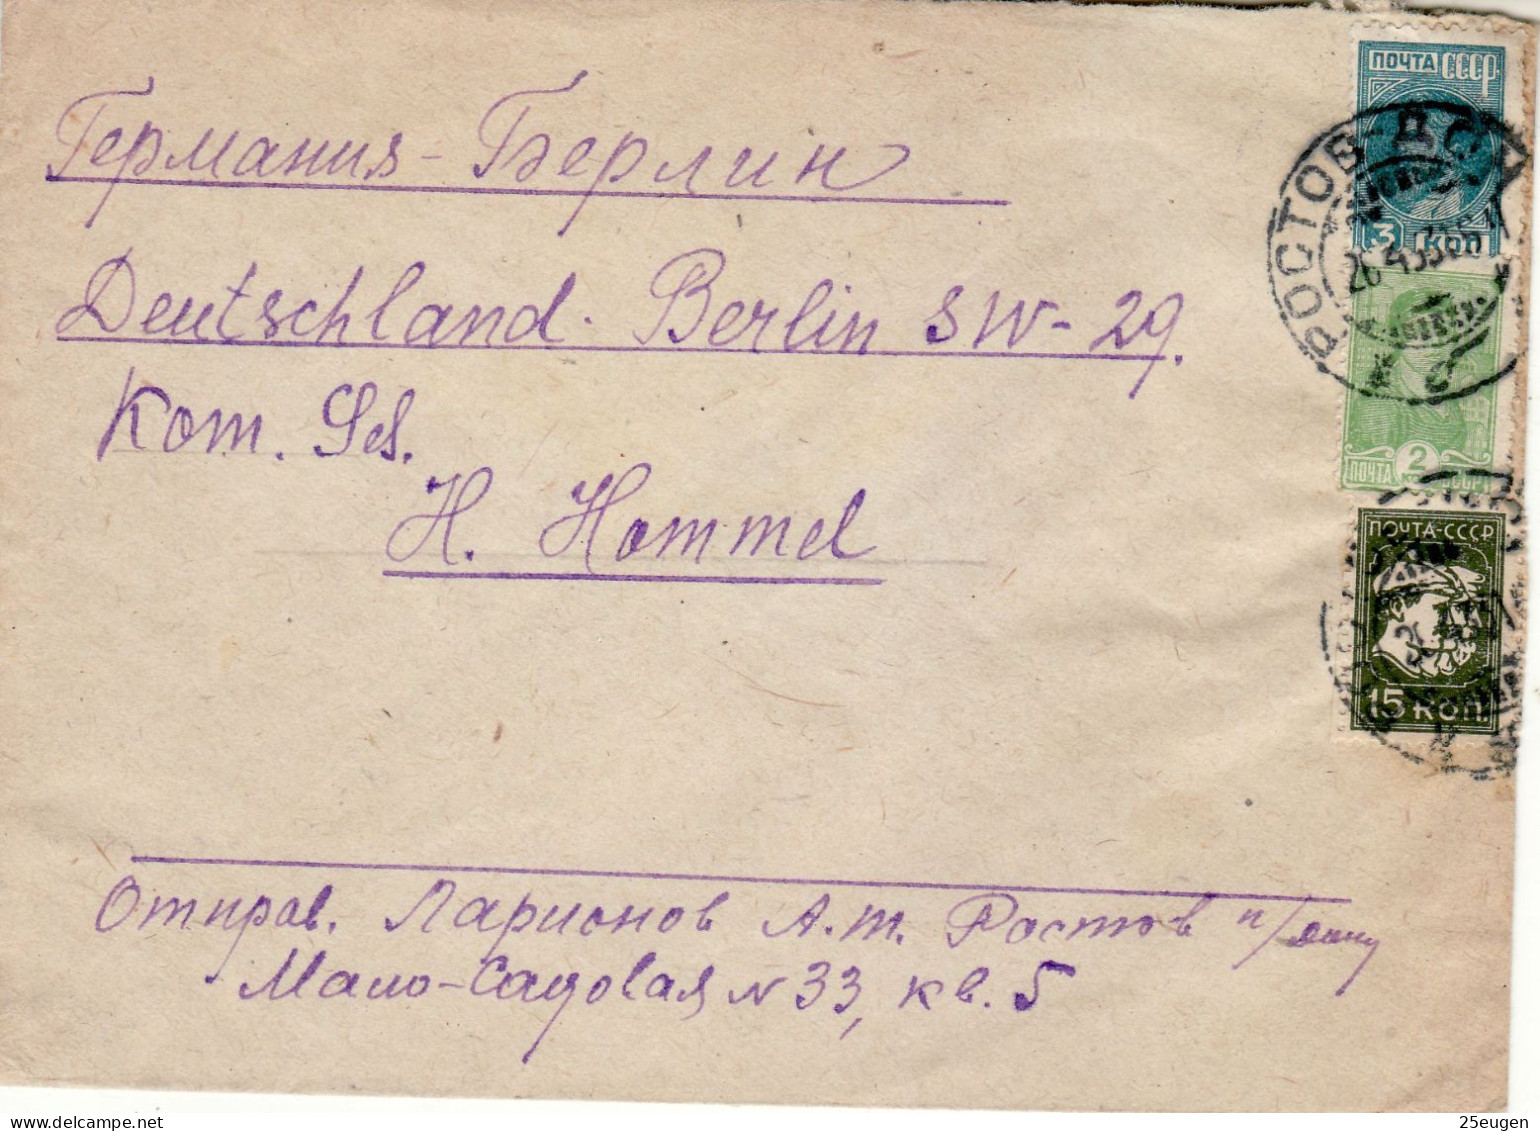 Германия - Берлин
Deutschland. Berlin SW-29.
Kom. Ges.
H. Hommel
Отправ. Ларионов А.т. Ростов н/дону
Мало-Садовая N 33, кв. 5
ПОЧТА СССР
3 КОП
ПОЧТА 2 СССР
ПОЧТА-СССР
15 КОП
РОСТОВ-ДОН
25eugen